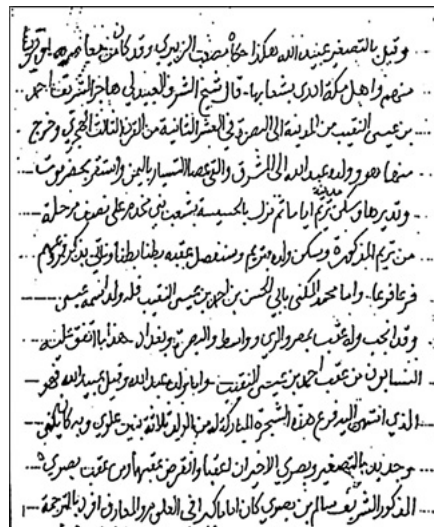 وقيل بالتصغير عبيد الله هكذا حكاه مصعب الزبيري وقد كان
منهم واهل مكة ادرى بشعابها. قال شيخ الشرف العبيدلي هاجر الشريف احمد
بن عيسى النقيب من المدينة الى البصرة في العشر الثانية من القرن الثالث الهجري وخرج
منها هو وولده عبد الله الى المشرق والقى عصا التسيار باليمن واستقر بحضرموت
مدينة
وتديرها وسكن تريم اياما ثم نزل بالحسيسة بشعب بني مخدم على نصف مرحلة
من تريم المذكورة وسكن ولده بتريم وسنفصل عقبه بطنا بطنا وناتي بذكر
فرعا فرعا. واما محمد المكنى بابي الحسن بن احمد بن عيسى النقيب فله ولد اسمه عيسى
وقد انجب وله عقب بمصر والري وواسط والبصرة وبغداد هذا ما اتفق عليه
النسابون من عقب احمد بن عيسى النقيب واما ولده عبد الله وقيل عبيد الله فهو
الذي انتهى اليه فرع هذه الشجرة المباركة له من الولد ثلاثة بنين علوي وبه كان يكنى
وجديد بالتصغير وبصري الاخيران لعقبهما وانقرض عقبهما ومن عقب بصري
المذكور الشريف سالم بن بصري كان اماما كبيرا في العلوم والمعارف افرد بالترجمة